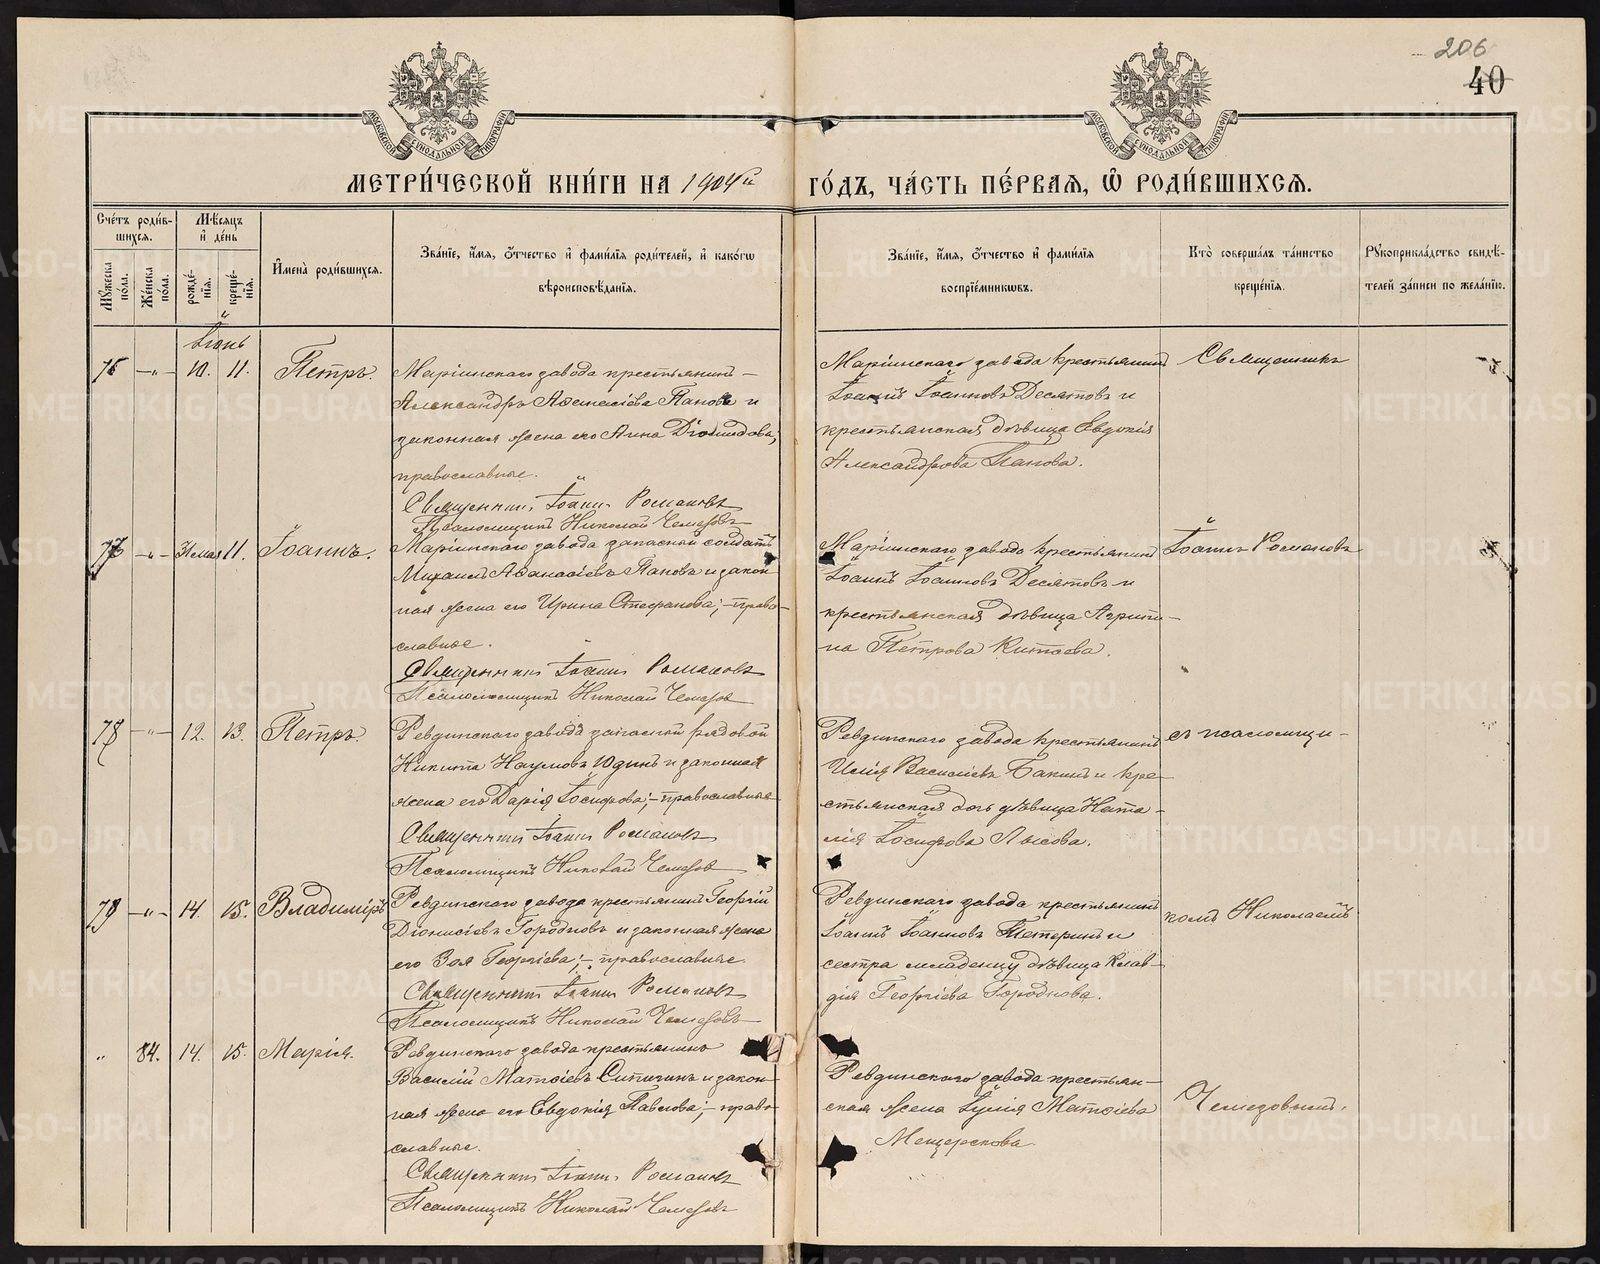 206
40
МОСКОВСКОЙ СѴНОДАЛЬНОЙ ТИПОГРАФІИ
МОСКОВСКОЙ СѴНОДАЛЬНОЙ ТИПОГРАФІИ
МЕТРИ́ЧЕСКОЙ КНИ́ГИ НА 1904й ГО́ДЪ, ЧА́СТЬ ПЕ́РВАЯ, Ѽ РОДИ́ВШИХСЯ.
Сче́тъ роди́в-
шихся.
Мꙋжеска по́ла.
Же́нска по́ла.
Мѣ́сяцъ
и҆ де́нь
рожде́-
нія.
креще́-
нія.
И҆мена̀ роди́вшихся.
Зва́ніе, и҆́мя, ѻ҆́тчество и҆ фами́лія роди́телей, и҆ како́гѡ
вѣроисповѣ́данія.
Зва́ніе, и҆́мя, ѻ҆́тчество и҆ фами́лія
воспріе́мникѡвъ.
Кто̀ соверша́лъ та́инство
креще́нія.
Рꙋкоприкла́дство свидѣ́-
телей за́писи по жела́нію.
Іюнь
76 -"- 10. 11. Петръ.
Маріинскаго завода крестьянинъ
Александръ Аѳанасіевъ Пановъ и
законная жена его Анна Діомидова;
православные.
Священникъ Іоаннъ Романовъ
Псаломщикъ Николай Чемезовъ
Маріинскаго завода крестьянинъ
Іоаннъ Іоанновъ Десятовъ и
крестьянская дѣвица Евдокія
Александрова Панова.
Священникъ
77 -"- 31 мая 11. Іоаннъ.
Маріинскаго завода запасной солдатъ
Михаилъ Аѳанасіевъ Пановъ и закон-
ная жена его Ирина Стефанова; право-
славные.
Священникъ Іоаннъ Романовъ
Псаломщикъ Николай Чемезовъ
Маріинскаго завода крестьянинъ
Іоаннъ Іоанновъ Десятовъ и
крестьянская дѣвица Агрипи-
на Петрова Китаева.
Іоаннъ Романовъ
78 -"- 12. 13. Петръ.
Ревдинскаго завода запасной рядовой
Никита Наумовъ Юдинъ и законная
жена его Дарія Іосифова; православные
Священникъ Іоаннъ Романовъ
Псаломщикъ Николай Чемезовъ
Ревдинскаго завода крестьянинъ
Илія Василіевъ Бакинъ и кре-
стьянская дочь дѣвица Ната-
лія Іосифова Лысова.
съ псаломщи-
79 -"- 14. 15. Владиміръ
Ревдинскаго завода крестьянинъ Георгій
Діонисіевъ Городновъ и законная жена
его Зоя Георгіева; православные
Священникъ Іоаннъ Романовъ
Псаломщикъ Николай Чемезовъ
Ревдинскаго завода крестьянинъ
Іоаннъ Іоанновъ Тетеринъ и
сестра младенцу дѣвица Клав-
дія Георгіева Городнова.
комъ Николаемъ
" 84. 14. 15. Марія.
Ревдинскаго завода крестьянинъ
Василій Матѳіевъ Ситичинъ и закон-
ная жена его Евдокія Павлова; право-
славные.
Священникъ Іоаннъ Романовъ
Псаломщикъ Николай Чемезовъ
Ревдинскаго завода крестьян-
ская жена Іулія Матѳіева
Мещерскова
Чемезовымъ.